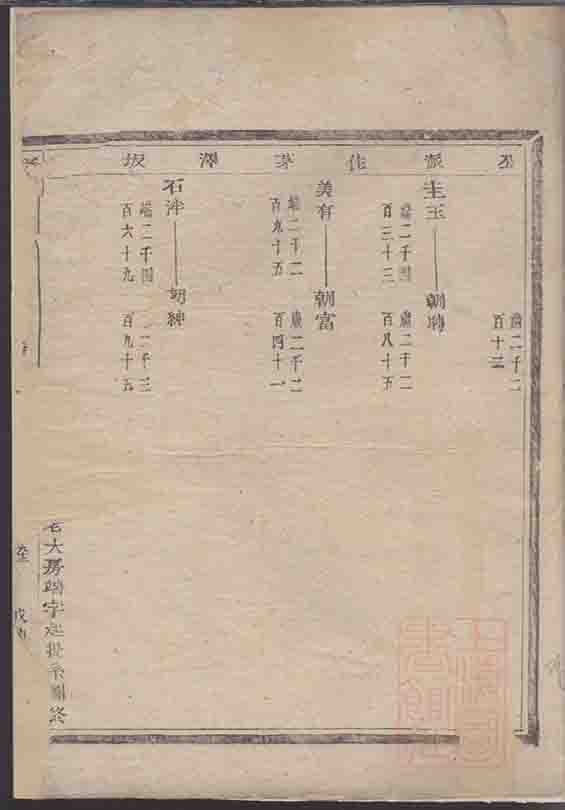 丕派佳茅澤坂
歲二千二
百十二
圭玉 朝聘
歲二千四
百三十三
歲二千二
百八十五
美有 朝富
歲二千二
百九十五
歲二千二
百四十一
石泮 朝紳
歲二千四
百六十九
二千三
百九十五
老大房 字 世系圖終